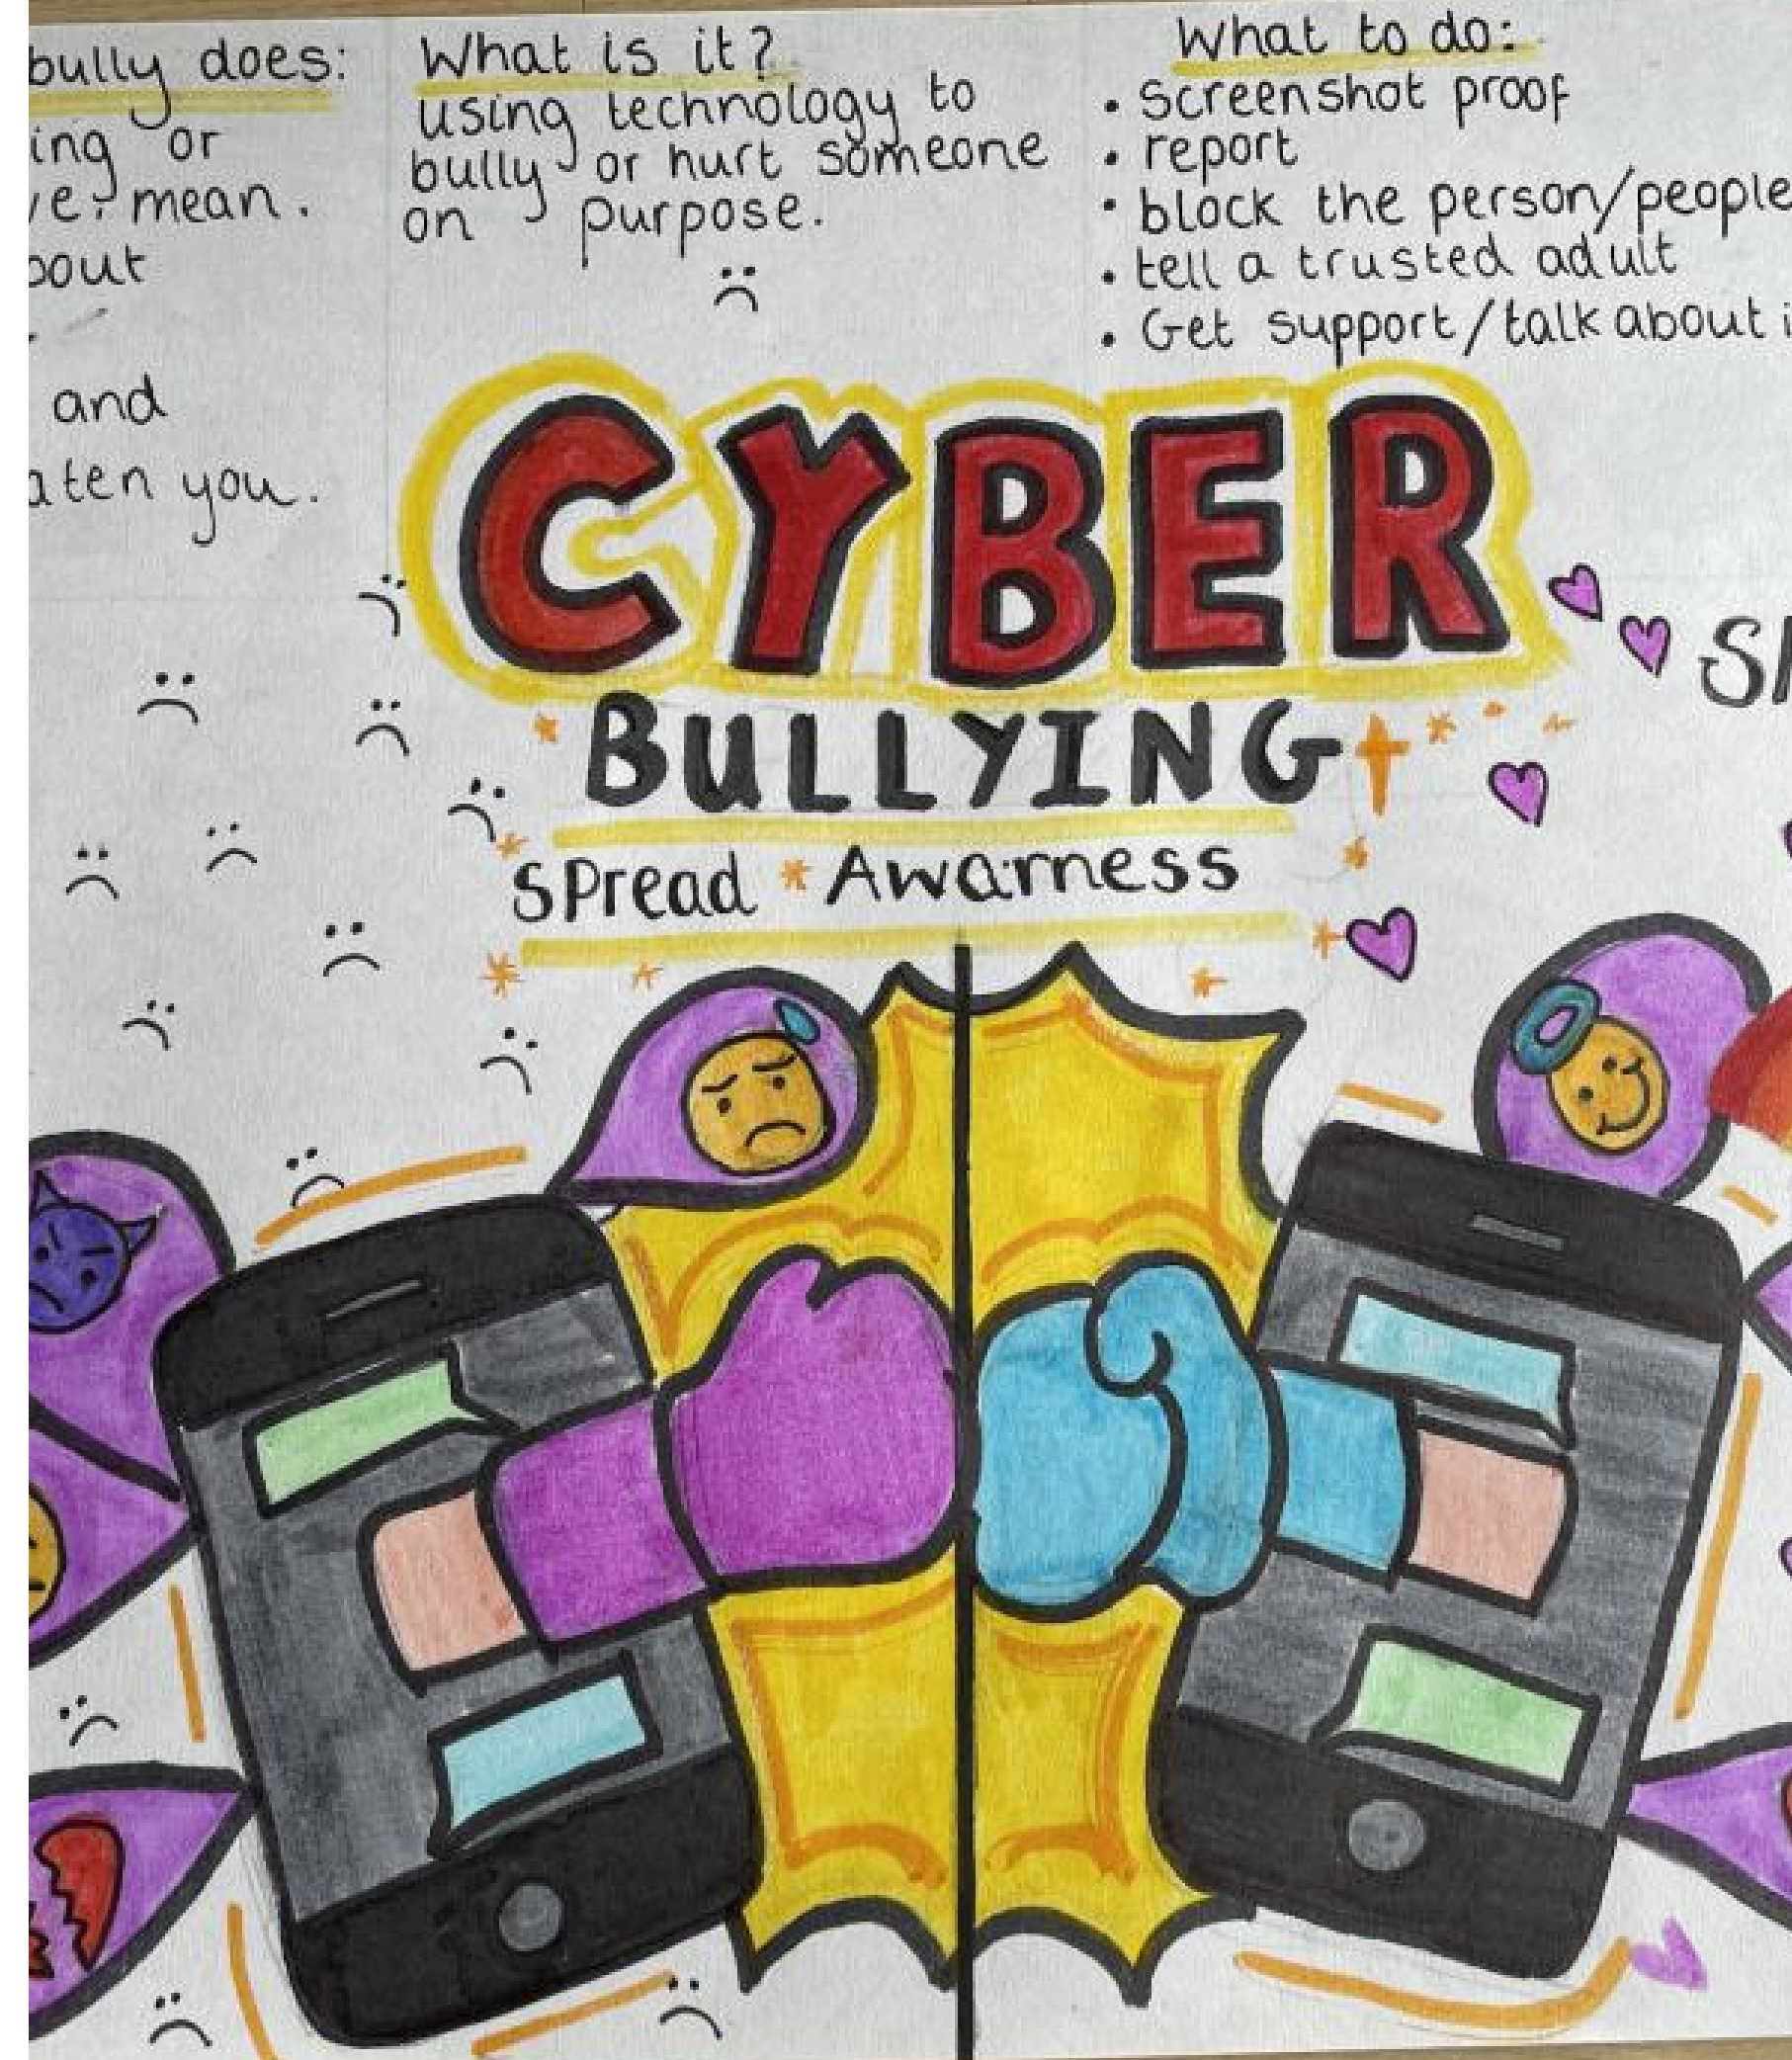 bully does:
ing or
mean.
and
you.
What is it?
using technology to
bully or hurt someone
on purpose.
What to do:
• Screenshot proof
• report
• block the person/people
• tell a trusted adult
• Get support/talk about i
CYBER
BULLYING
Spread * Awarness